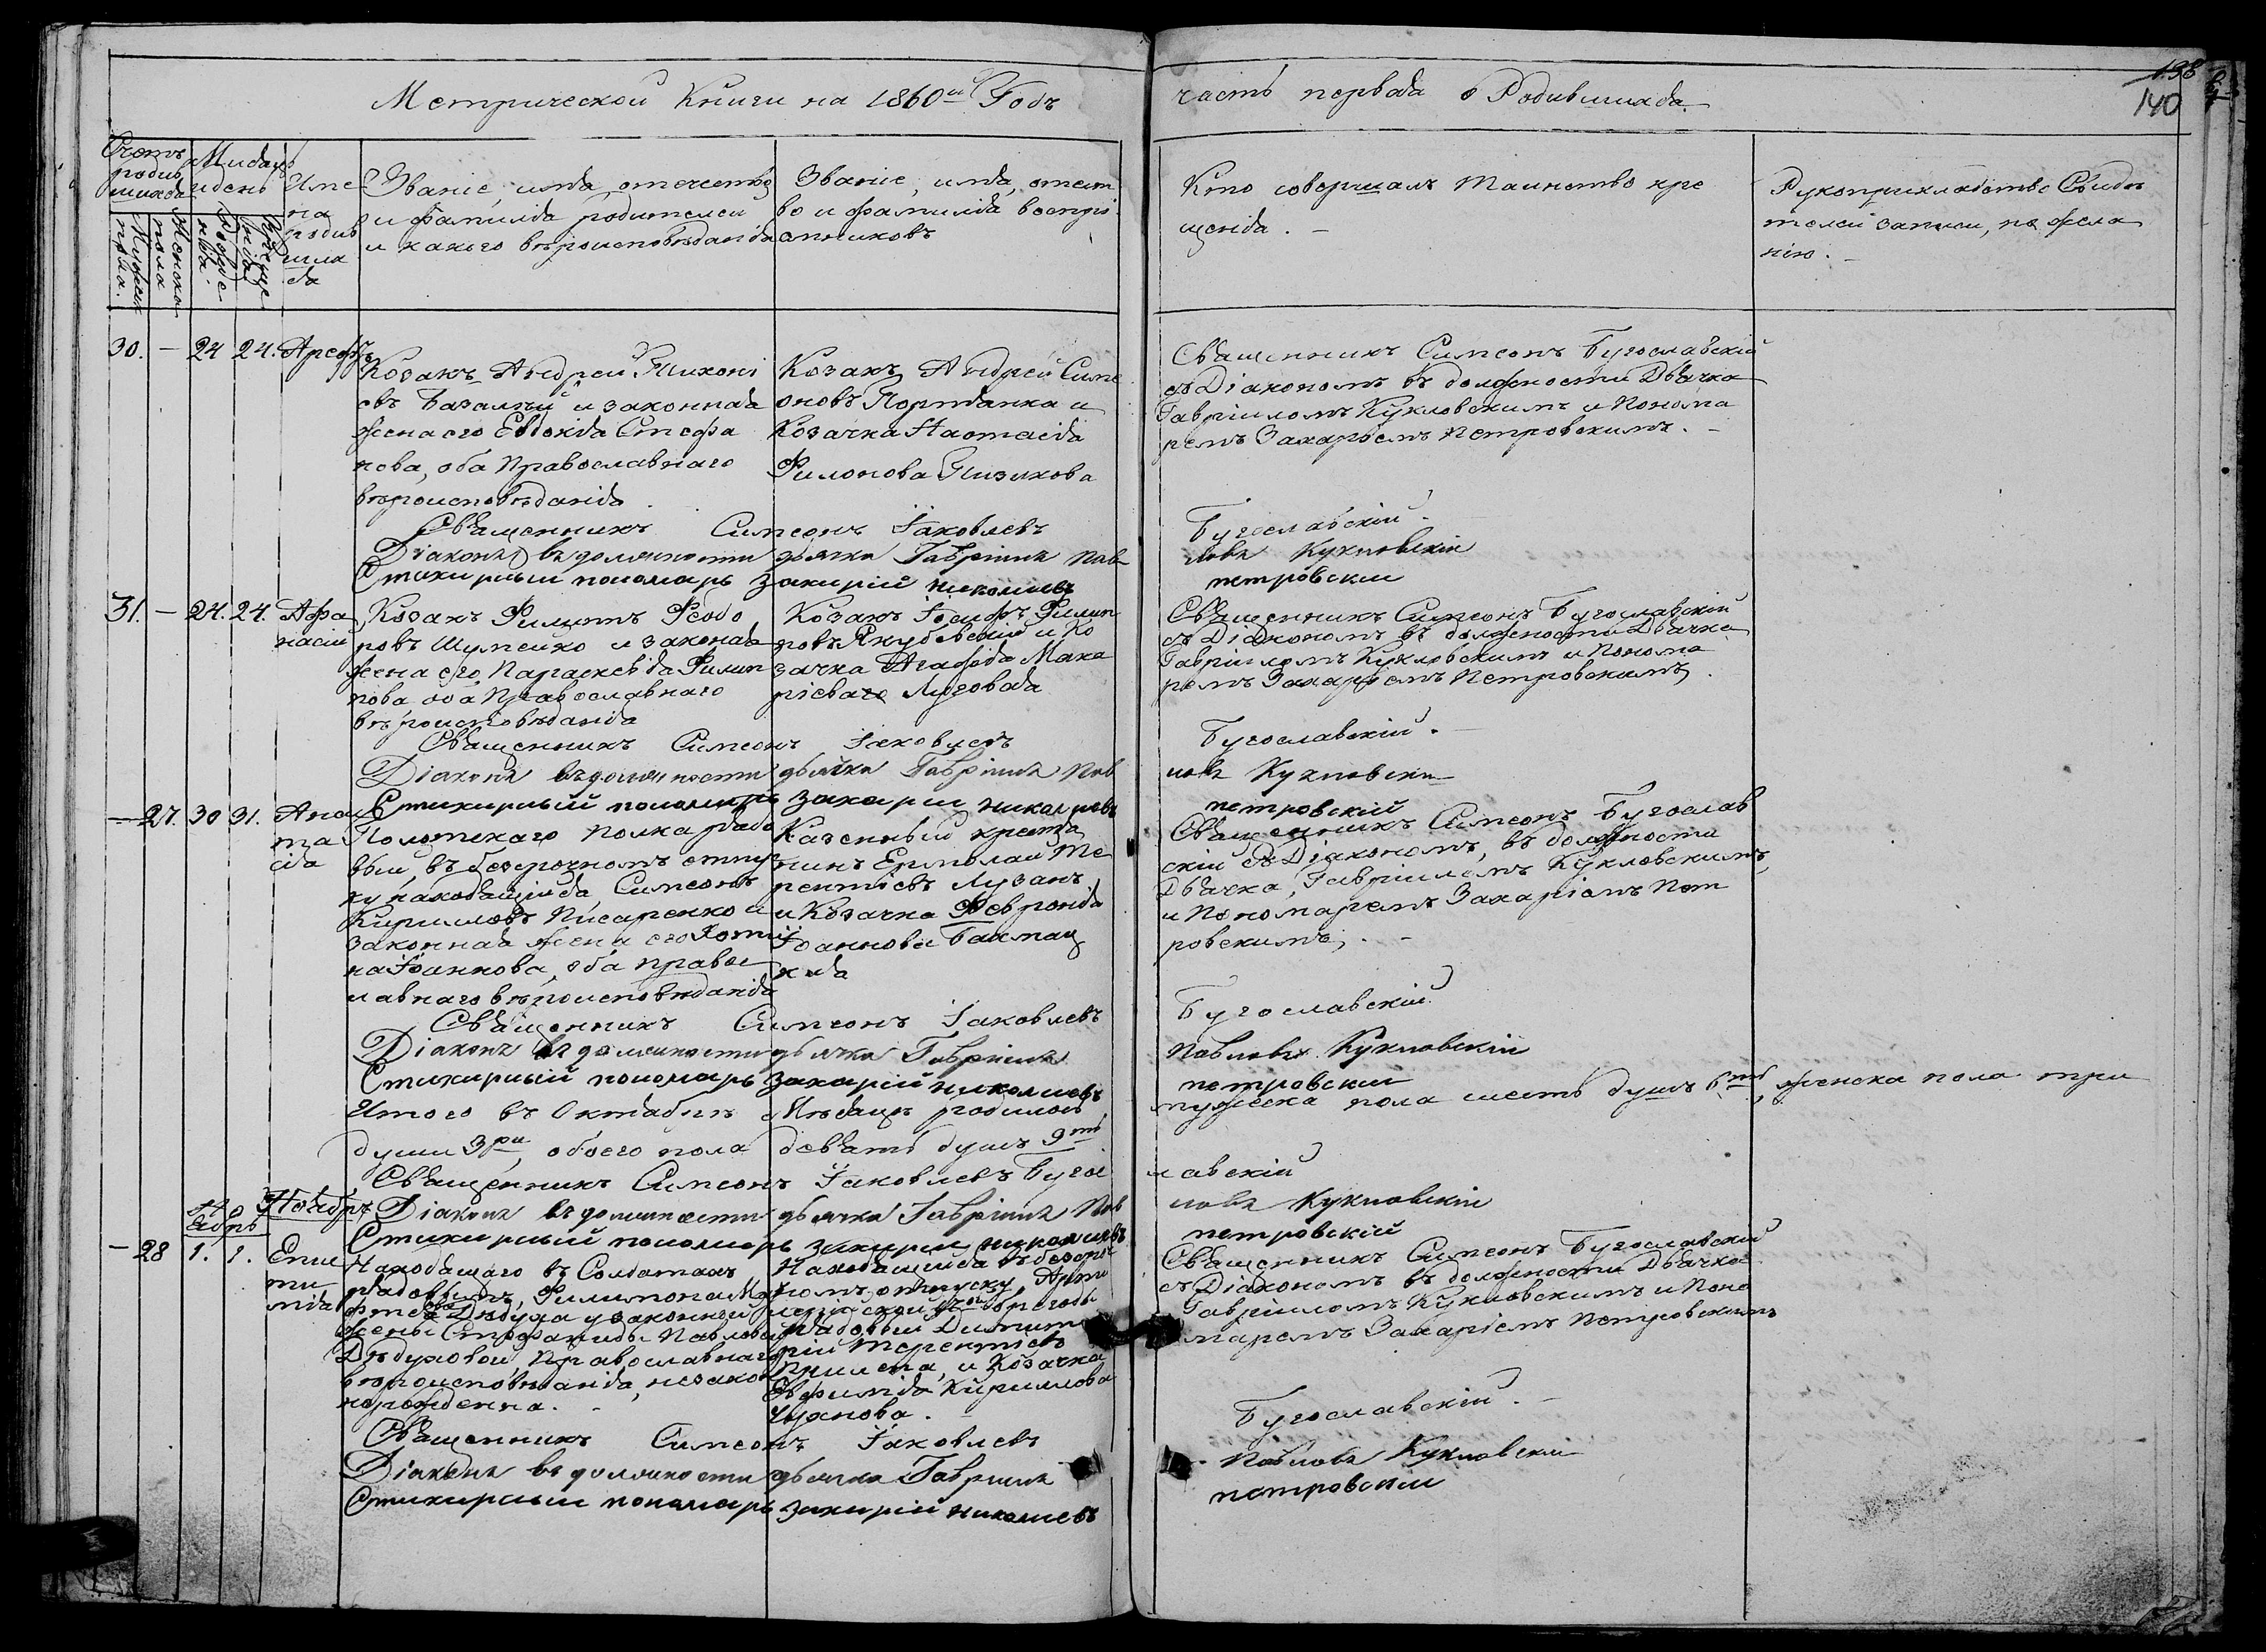 Метрической Книги на 1860й Годъ
часть первая о Родившихся.
138
140
Счетъ родив шихся
Мужеск пола.
Женска пола
Мѣсяцъ и день
Рожде нія.
Креще нія
Име на родив ших ся
Званіе, имя, отечество
и фамилія родителей
и какого вѣроисповѣданія
Званіе, имя, отест
во и фамилія воспрі
емниковъ
Кто совершалъ Таинство кре
щенія. –
Рукоприкладство Свидѣ
телей записи, по жела
нію. –
30. – 24 24. Арефъ
Козакъ Андрей Тихоні
евъ и законная
жена его Евдокія Стефа
нова, оба Православнаго
вѣроисповѣданія.
Козакъ Андрей Симе
оновъ Портянка и
Козачка Настасія
Филонова
Священникъ Симеонъ Бугославскій
съ Діакономъ въ должности Дьячка
Гавріиломъ Кукловскимъ и Понома
ремъ Захаріемъ Петровскимъ. –
Священникъ Симеонъ Іаковлевъ Бугославскій.
Діаконъ въ должности дьячка Гавріилъ Пав ловъ Кукловскій
Стихирный пономарь Захарій Николаевъ петровскій
31. – 24. 24. Афа насій
Козакъ Филиппъ Феодо
ровъ Шумейко и законная
жена его Параскевія Филип
пова оба Православнаго
вѣроисповѣданія
Козакъ Іосифъ Филип
повъ Якубовскій и Ко
зачка Агафія Мака
ріева Луговая
Священникъ Симеонъ Бугославскій
съ Діакономъ въ должности Дьячка
Гавріиломъ Кукловскимъ и Понома
ремъ Захаріемъ Петровскимъ.
Священникъ Симеонъ Іаковлевъ Бугославскій. –
Діаконъ въ должности дьячка Гавріилъ Пав ловъ Кукловскій
Стихирный пономарь Захарій Николаевъ петровскій
– 27. 30 31. Анас та сія
Полотскаго полка рядо
вый, въ безсрочномъ отпус
ку находящійся Симеонъ
Кирилловъ Писаренко и
законная жена его
Іоаннова, оба правос
лавнаго вѣроисповѣданія
Казенный крестья
нинъ Ермолай Те
рентіевъ Лузанъ
и Козачка Февронія
Іоаннова Бахмац
кая
Священникъ Симеонъ Бугослав
скій съ Діакономъ, въ должности
Дьячка, Гавріиломъ Кукловскимъ,
и Пономаремъ Захаріемъ Пет
ровскимъ; . –
Священникъ Симеонъ Іаковлевъ Бугославскій.
Діаконъ въ должности дьячка Гавріилъ Павловъ Кукловскій
Стихирный пономарь Захарій Николаевъ петровскій
Итого въ Октябрѣ Мѣсяцѣ родилось мужеска пола шесть душъ 6ть, женска пола три
души 3ри, обоего пола девять душъ 9ть
Священникъ Симеонъ Іаковлевъ Бугос лавскій
Діаконъ въ должности дьячка Гавріилъ Пав ловъ Кукловскій
Стихирный пономарь Захарій Николаевъ петровскій
Ноябрь Ноябрь
– 28 1. 1. Епис ти мія
Находящаго въ Солдатахъ
рядовымъ, Филимона
Дѣдуха у законной
жены Стефаниды Павловой
Дѣдуховой, Православнаго
вѣроисповѣданія, незакон
норожденна. –
Находящійся въ безсроч
номъ отпуску, Арти
лерійской бригады
рядовый Димит
рій Терентіевъ
и Козачка
Евфимія Кириллова
Чуднова. –
Священникъ Симеонъ Бугославскій
съ Діакономъ въ должности Дьячка
Гавріиломъ Кукловскимъ и Поно
маремъ Захаріемъ Петровскимъ
Священникъ Симеонъ Іаковлевъ Бугославскій. –
Діаконъ въ должности дьячка Гавріилъ Павловъ Кукловскій
Стихирный пономарь Захарій Николаевъ петровскій